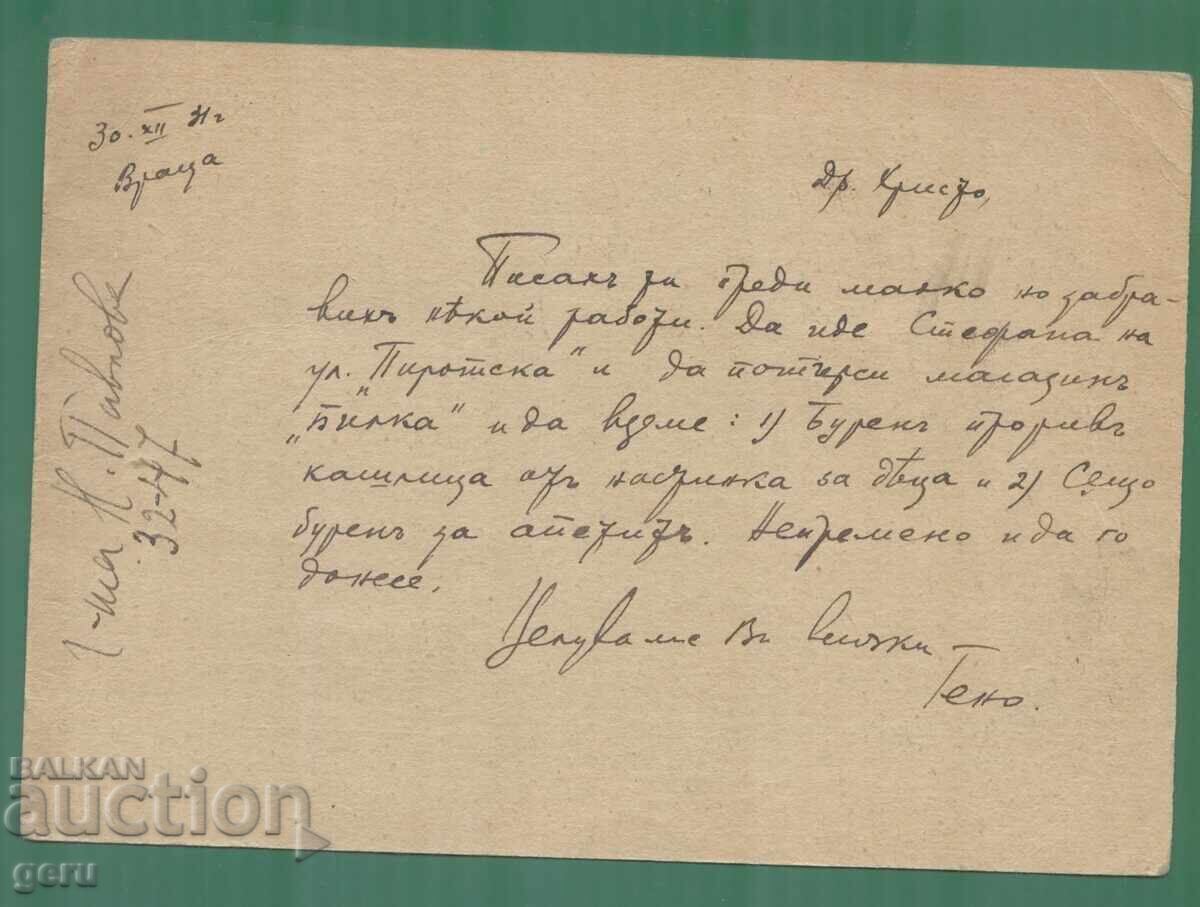 30. XII 41 г
Враца
Др. Христо,
Писахъ ти преди малко но забра-
вихъ нѣкой работи. Да иде Стефана на
ул. "Пиротска" и да потърси магазинъ
"Билка" и да вземе: 1) Буренъ противъ
кашлица отъ настинка за дѣца и 2) Също
буренъ за апетитъ. Непремено и да го
донесе.
Целуваме Ви всички
Гено.
Г-ша Н. Павлова
32-47
BALKAN
auction
geru